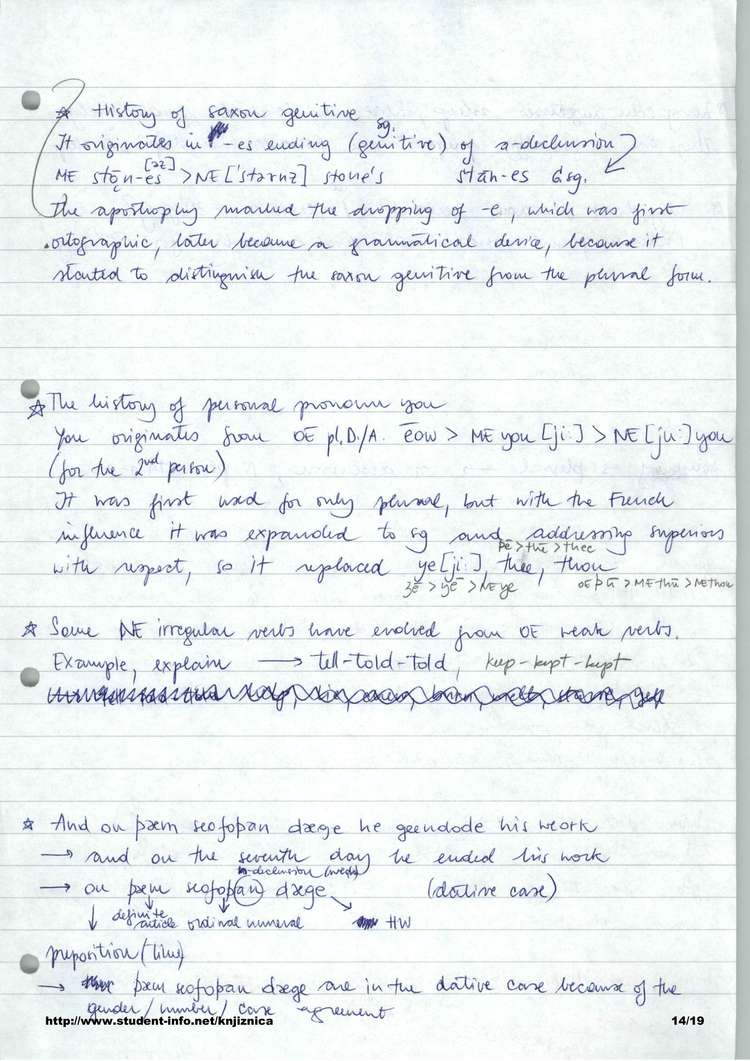 ☆ History of saxon genitive
It originates in -es ending (genitive) sg. of a-declension
ME stǭn-es [əz] > NE ['stərnz] stone's stān-es G sg.
The apostrophy marked the dropping of -e, which was first
ortographic, later became a grammatical device, because it
started to distinguish the saxon genitive from the plural form.
☆ The history of personal pronoun you
You originates from OE pl, D./A. ēow > ME you [ji:] > NE [ju:] you
(for the 2nd person)
It was first used for only plural, but with the French
influence it was expanded to sg and addressing superiors
þē > thē > thee
with respect, so it replaced ye [ji:], thee, thou
ȝē > yē > NE ye OE þū > ME thū > NE thou
☆ Some NE irregular verbs have evolved from OE weak verbs.
Example, explain → tell-told-told, keep-kept-kept
☆ And on þæm seofoþan dæge he geendode his weork
→ and on the seventh day he ended his work
n-declension (weak)
→ on þæm seofoþan dæge (dative case)
definite article ordinal numeral HW
preposition (time)
→ þæm seofoþan dæge are in the dative case because of the
gender/number/case agreement
http://www.student-info.net/knjiznica 14/19